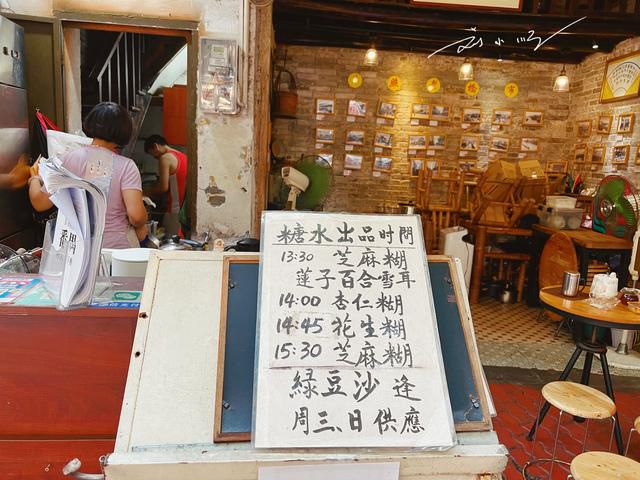 刘小顺
糖水出品时間
13:30 芝麻糊
蓮子百合雪耳
14:00 杏仁糊
14:45 花生糊
15:30 芝麻糊
綠豆沙 逢
周三、日供應